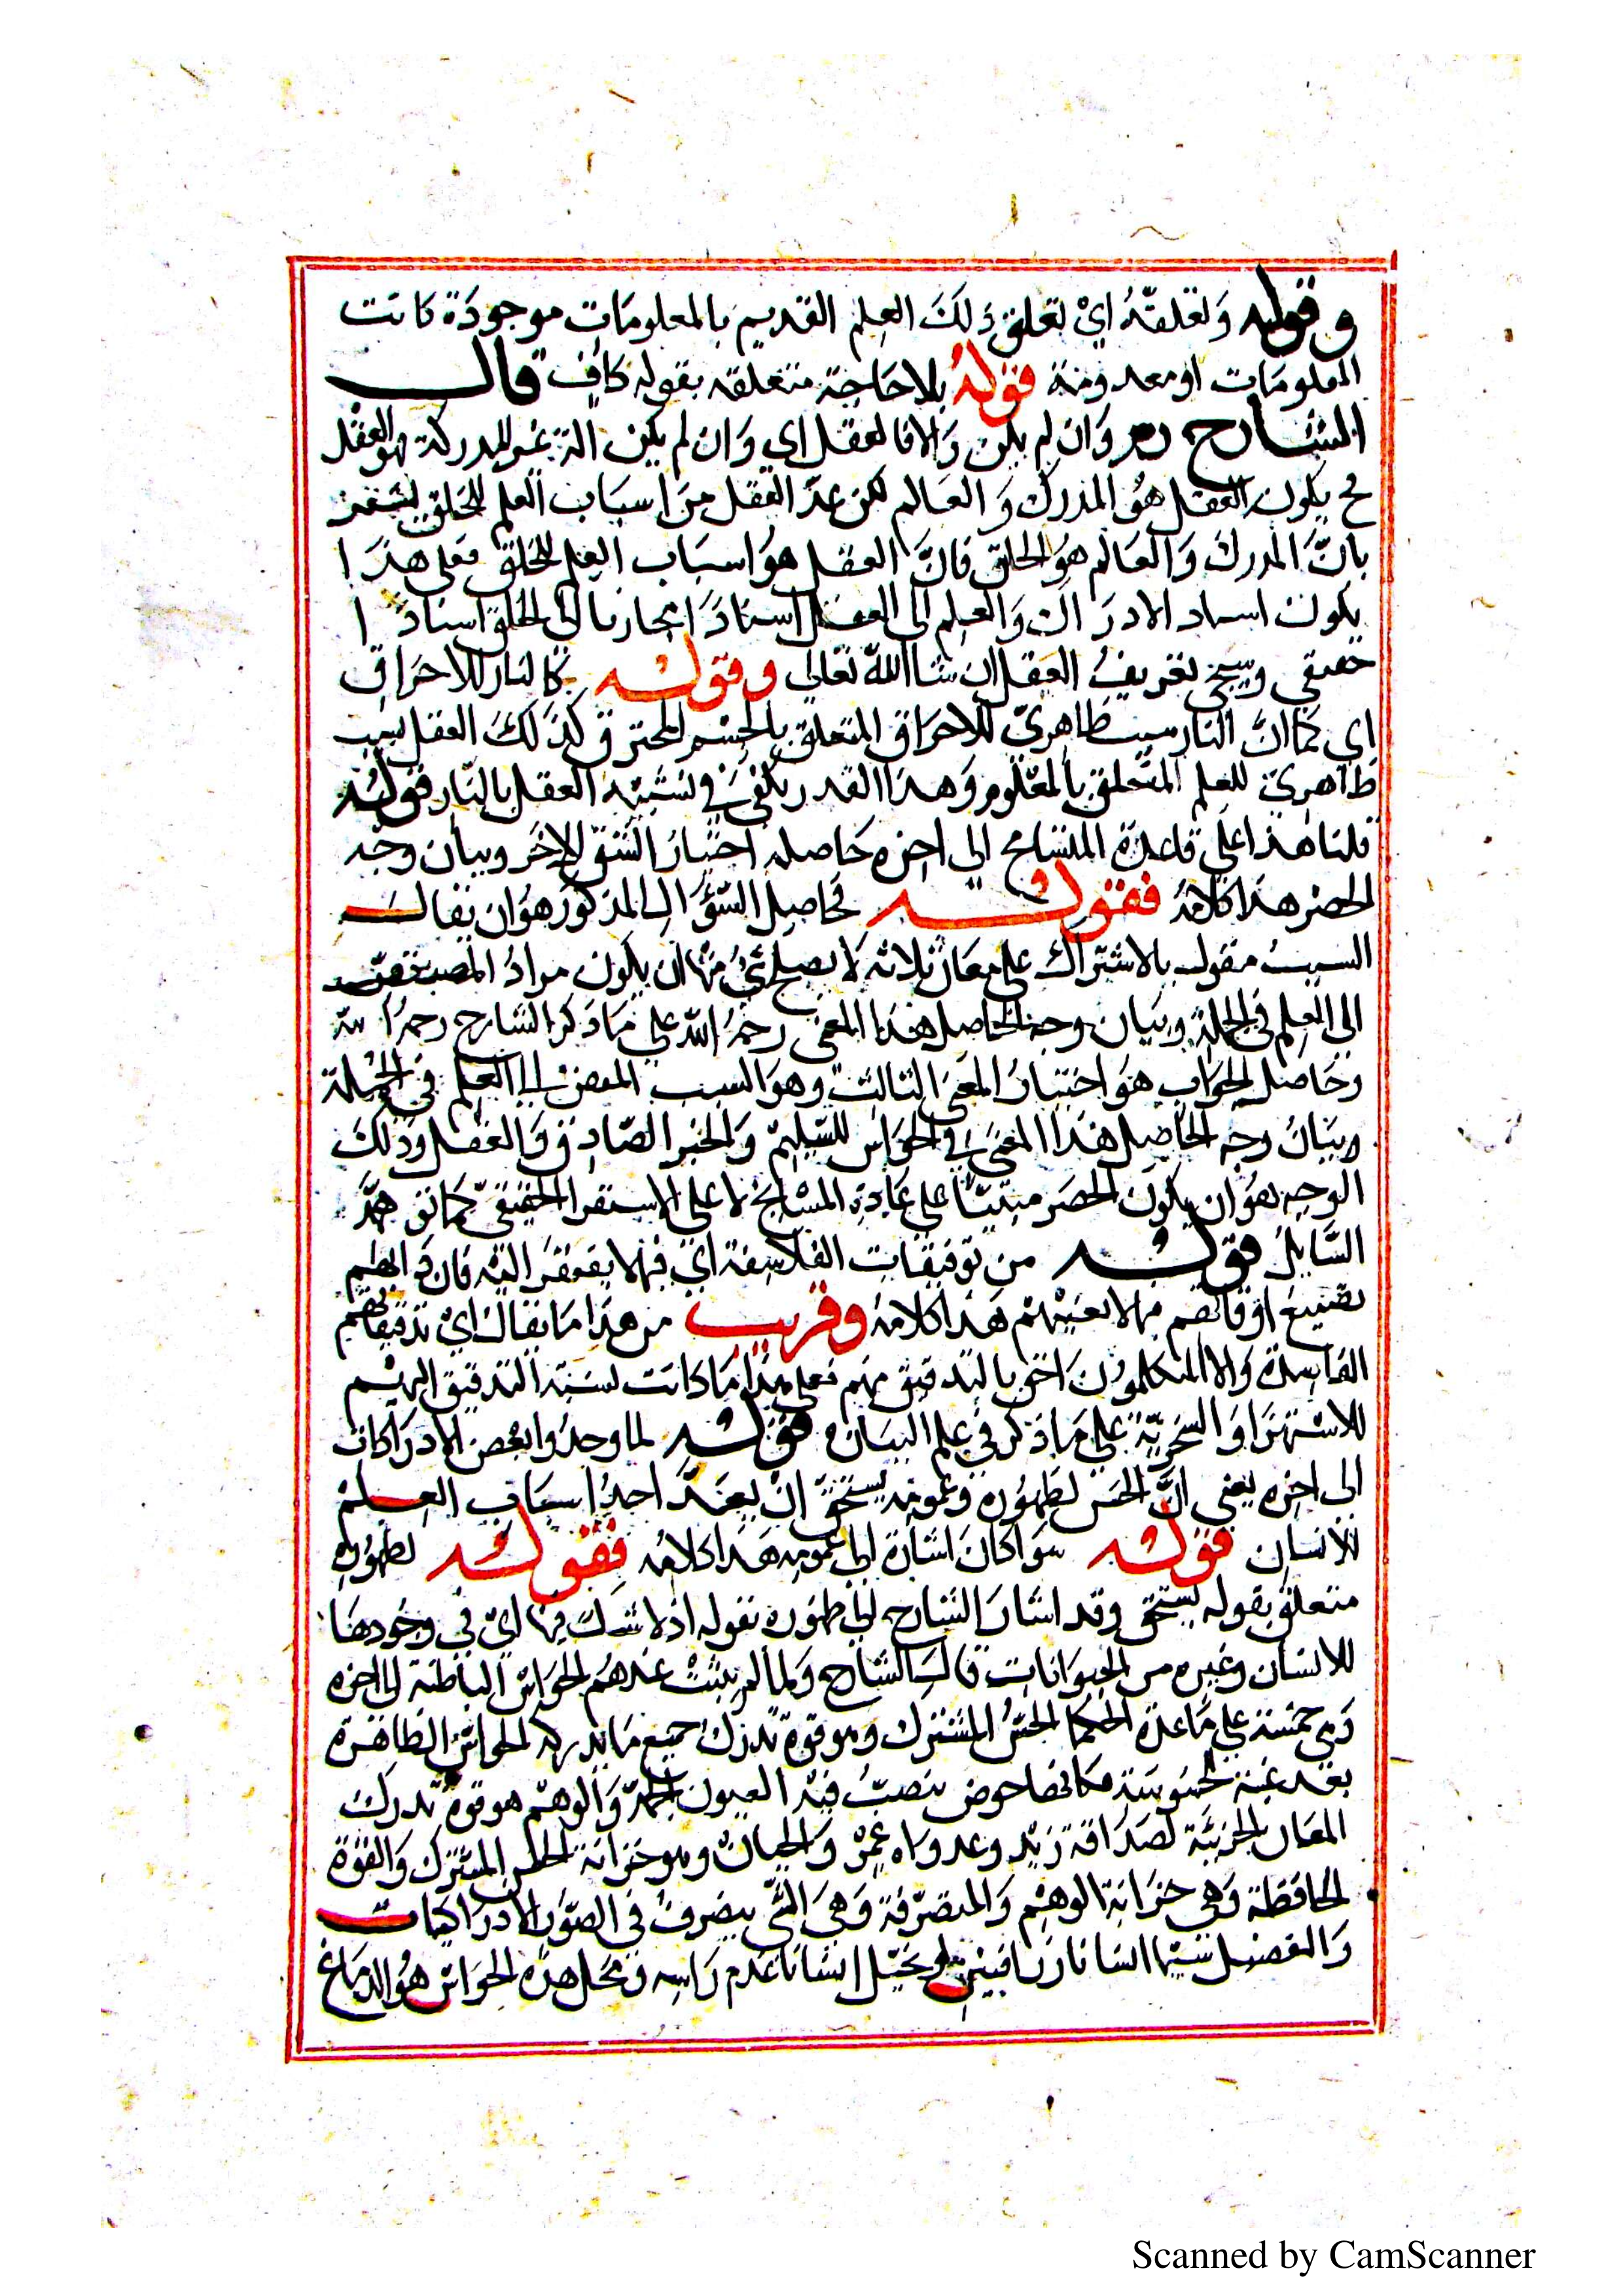 وقوله وَتعلقهُ ايْ تعلق ذلكَ العلم القديم بالمعلومَاتِ موجودَة كانت
المعلومَات او معدومَة فقولهُ بلا حَاجَة متعلقه بقوله كافٍ قال
الشارح ره وَان لم يكن وَالا فالعقل اي وَان لم يكن الة غير المدركة فهو العقل
فح يكون العقل هوُ المدرك وَالعَالم لكن عدّ العقل مِنَ اسبَاب العلم للخلق
بانَّ المدركَ وَالعَالم هوُ الخلق فانَّ العقل هوَ اسبَاب العلم للخلق فعلى هذَا
يكون اسناد الادرَاك وَالعلم الى العقل اسنادًا مجازيا الى الخلق اسنادًا
حقيقي وسيجئ تعريفُ العقل ان شا اللّه تعَالى وقوله كالنار للاحرَاق
اي كمَا انَّ النار سبب ظاهريّ للاحرَاق المتعلق بالجسْم المحترق كذلكَ العقل سبب
ظاهريّ للعلم المتعلق بالمعْلوم وَهذا القدر يكفىَ في تشبيْه العقل بالنّار قوله
قلنا هذا على قاعدَة المشَايخ الى اخره حَاصله اختيَارُ الشقّ الاخَر وبيان وجْه
الحصْر هذا كلامهُ فقوله فحَاصِل السؤَال المذكور هوَ ان يقال
السببُ مقول بالاشترَاك على معَان ثلاثه لا يصلح شئُ منهَا ان يكون مرادُ المصنف
الى العلم في الجملة وبيَان وجه الحاصل هذا المعنى رحمهُ اللّه على مَا ذكر الشارح رحمهُ اللّه
وحَاصل الجوَاب هوَ اختيَارُ المعنى الثالث وهوَ السبب المفضى الى العلم في الجملة
وبيَانُ وجه الحاصل هذا المعنى في الحوَاس السّليمة وَالخبر الصّادِق وَالعَقل وذلكَ
الوجه هوَ ان يكونَ الحصر مبنيّا على عَادَة المشَايخ لا على الاستقرا الحقيقيّ
السَّايل قوله من توفيقاتِ الفلاسِفة اي فيمَا لا يفتقرُ اليْه فان
تضييع اوقاتهم فيما لا يعنيْهم هَذا كلامهُ وقريب من هذا مَا يقال اىْ تدقيقاتهم
الفاسِدة وَالا المتكلمونَ احَق بالتدقيق منهم فعلى هذا مَا كانت نسبَة التدقيق اليهْم
للاسْتهزَا وَالسّخريّة على مَا ذكر في عِلم البيَان قوله لما وجدُوا بعْض الادرَاكات
الى اخره يعني انَّ الحسّ لظهُوره وَعمومه يستحق انْ يعدَّ احدُ اسبَاب العلم
للانسان قوله سوَا كانَ اشارة الى عمومه هَذا كلامهُ فقوله لظهُوره
متعلق بقوله يستحق وقد اشارَ الشارح الى ظهوره بقوله اذ لا شكَ فيهَا ايْ في وجُودهَا
للانسَان وغيره من الحيوَانات قال الشارح وَلما لم يثبتْ عندهُم الحوَاسّ الباطنة الى اخره
وَهي خمسَة على قاعدَة الحكما الحسُّ المشترَك وهو قوة تدركُ جميع مَا يدركه الحواسّ الظاهرَة
بعْد غيبَة المحسُوسَة فكانهَا حوض ينصبُّ فيْه العيون الجمّة وَالوهْم هوَ قوة تدرك
المعَان الجزئيّة لصَدَاقة زيْد وعدوَاه عمْرو وَالخيال وهو خزانة الحسّ المشترَك وَالقوّة
الحَافظة وَهي خزَانة الوهْم وَالمتصَرّفة وَهيَ التي يتصرفُ في الصّور الادرَاكيات
هذه الحوَاسّ هوُ الدمَاغ
Scanned by CamScanner